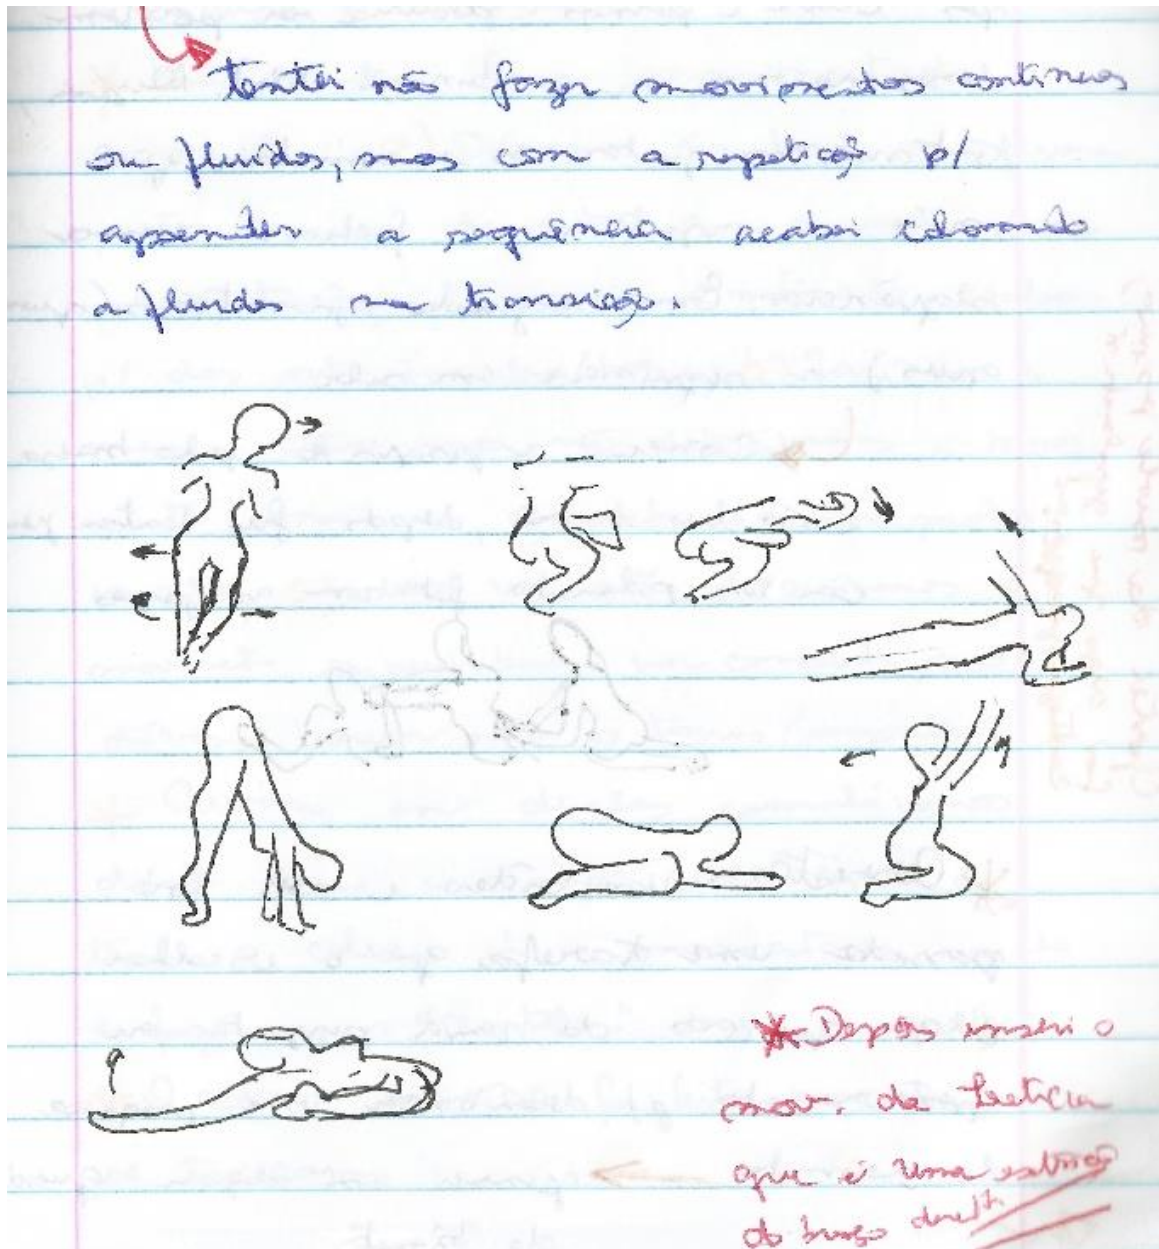 Tentei não fazer movimentos contínuos
ou fluídos, mas com a repetição p/
aprender a sequência acabei
a fluidos na transição.
* Depois inseri o
mov. da Letícia
que é uma
do braço